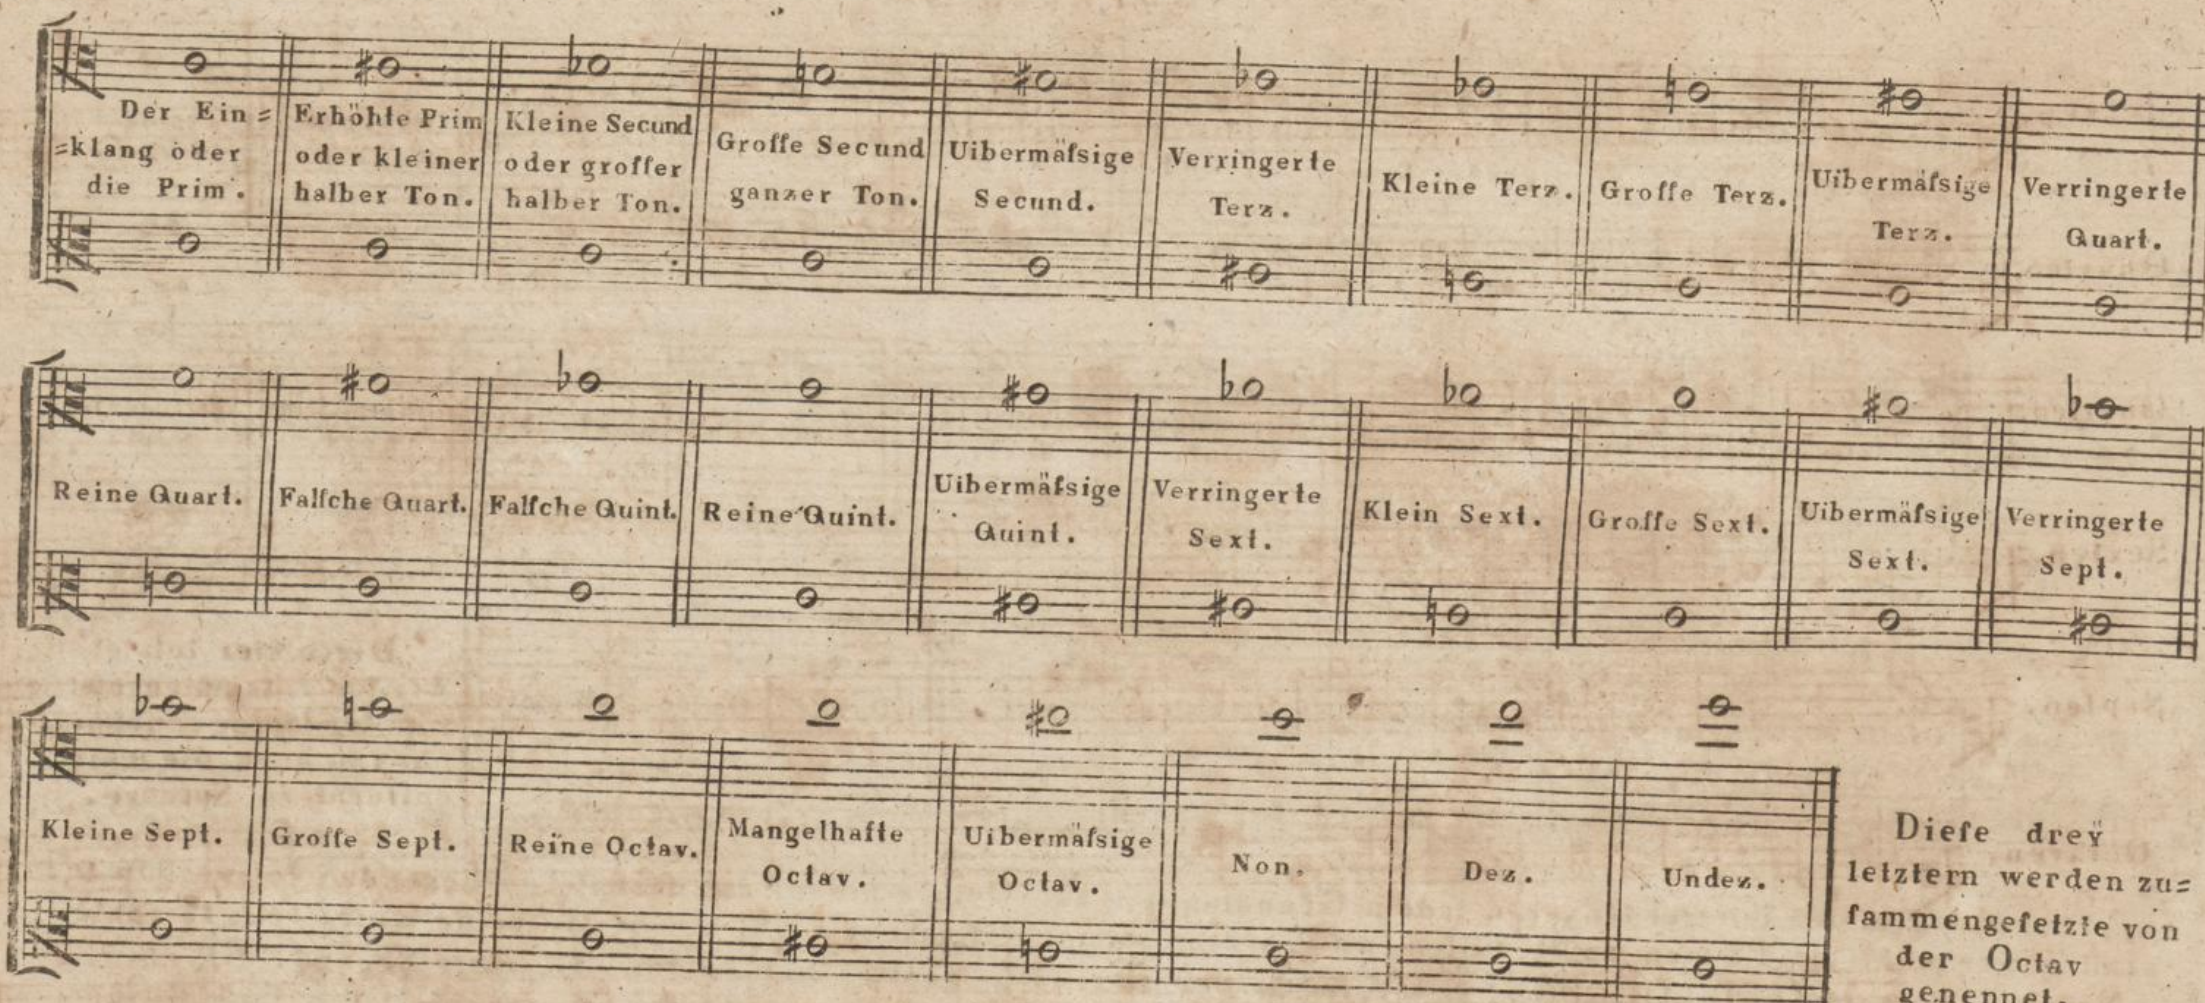 Der Ein=
=klang oder
die Prim.
Erhöhte Prim
oder kleiner
halber Ton.
Kleine Secund
oder groſſer
halber Ton.
Groſſe Secund
ganzer Ton.
Uibermäſsige
Secund.
Verringerte
Terz.
Kleine Terz.
Groſſe Terz.
Uibermäſsige
Terz.
Verringerte
Quart.
Reine Quart.
Falſche Quart.
Falſche Quint.
Reine Quint.
Uibermäſsige
Quint.
Verringerte
Sext.
Klein Sext.
Groſſe Sext.
Uibermäſsige
Sext.
Verringerte
Sept.
Kleine Sept.
Groſſe Sept.
Reine Octav.
Mangelhafte
Octav.
Uibermäſsige
Octav.
Non.
Dez.
Undez.
Dieſe dreÿ
letztern werden zu=
ſammengeſetzte von
der Octav
genennet.